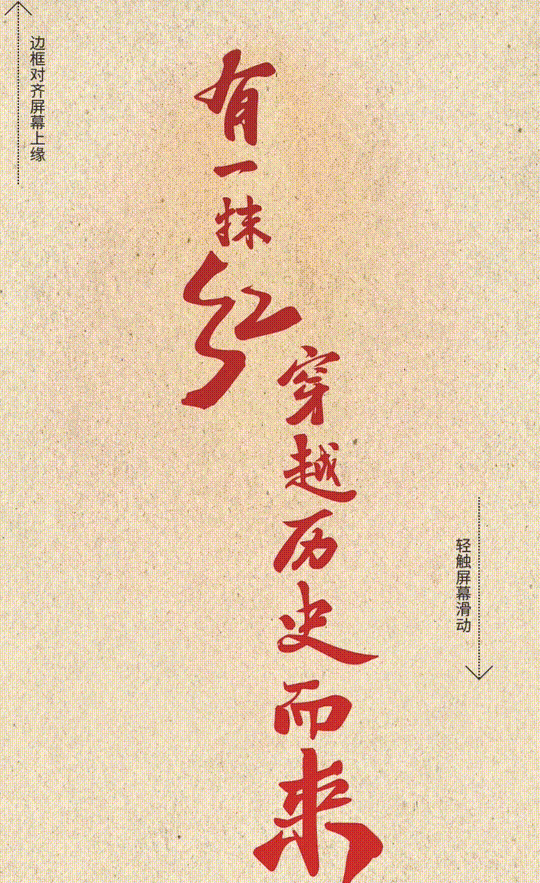 边框对齐屏幕上缘
有一抹红
穿越历史而来
轻触屏幕滑动